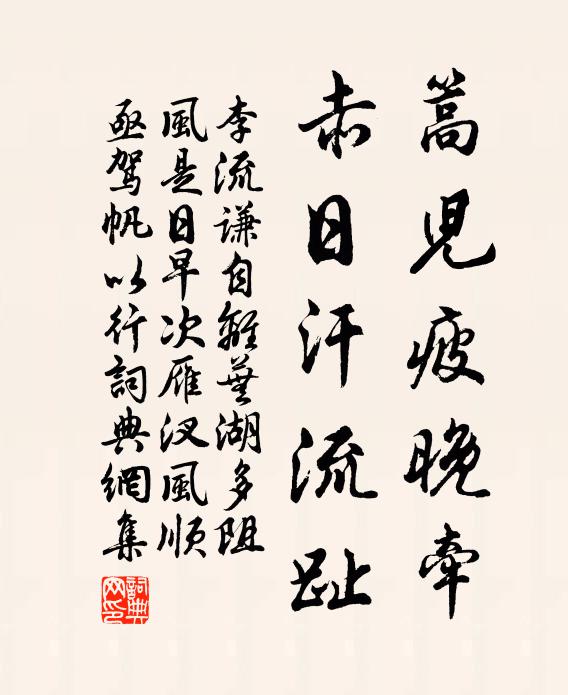 蒿児疲晚牽
赤日汗流趾
李流謙自離蕪湖多阻
風是日早次雁汊風順
亟駕帆以行詞典網集
詞典
网印